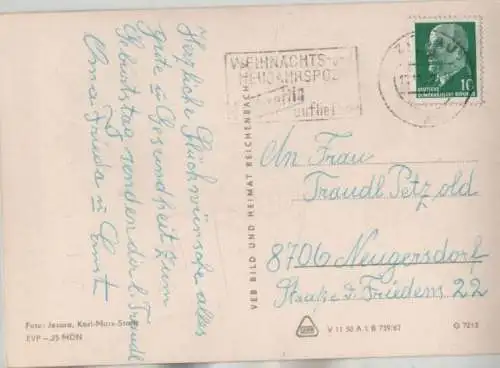 Herzliche Glückwünsche alles
gute u Gesundheit zum
Geburtstag senden dir l. Traudl
Oma Frieda u Ernst
Foto: Jesora, Karl-Marx-Stadt
EVP –.25 MDN
VEB BILD UND HEIMAT REICHENBACH
WEIHNACHTS-u.
NEUJAHRSPO
aufliefern
10
DEUTSCHE
DEMOKRATISCHE REPUBLIK
An Frau
Traudl Petzold
8706 Neugersdorf
Straße d. Friedens 22
V 11 50 A 1, B 739/67
G 7213